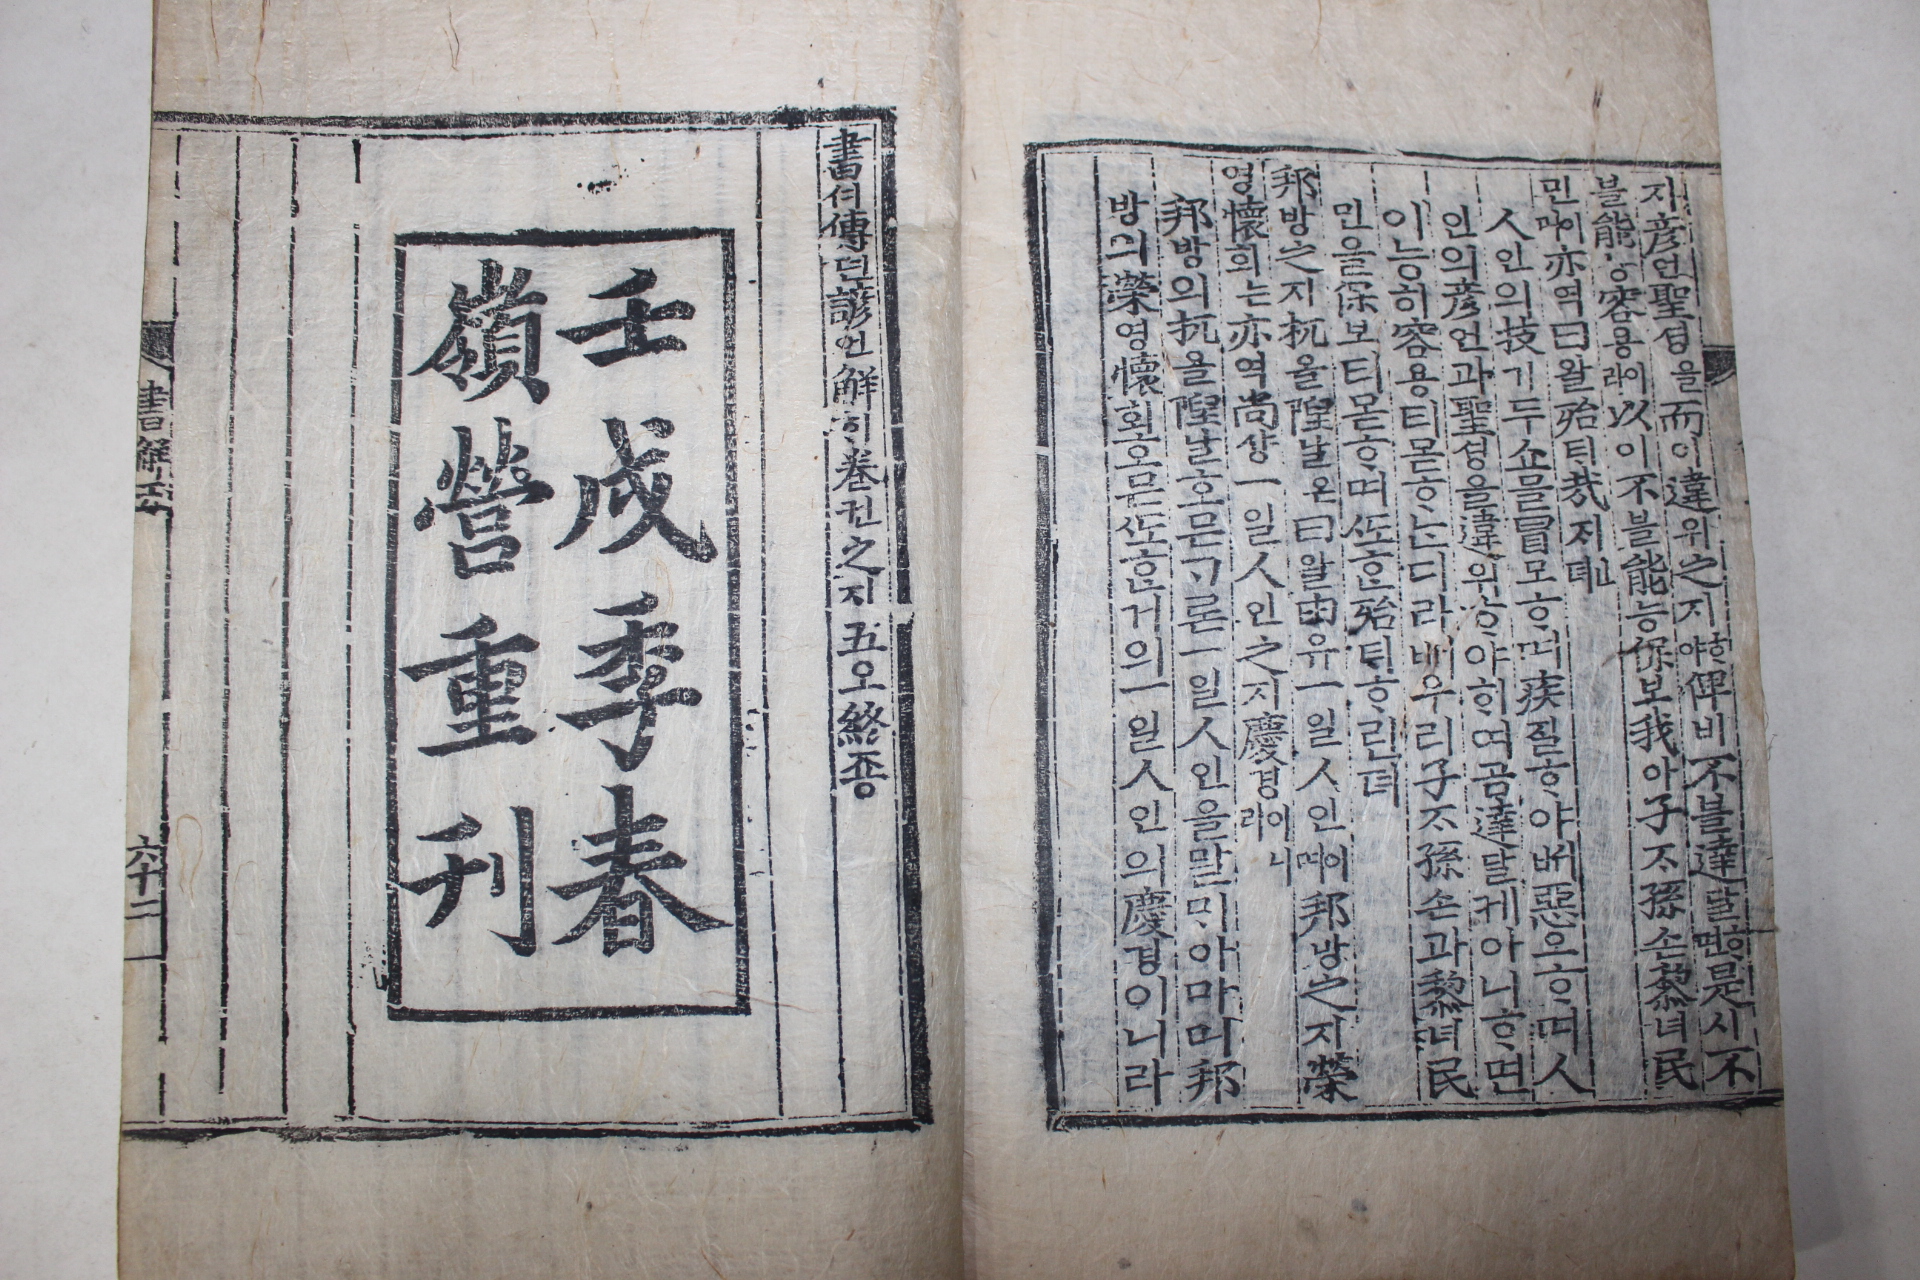 지彦언聖셩을而이違위之지ᄒᆞ야俾비不블達달ᄒᆞ면是시不
블能능容용이라以이不블能능保보我아子ᄌᆞ孫손黎녀民
민이며亦역曰왈殆ᄐᆡ哉ᄌᆡᆫ뎌
人인의技기두쇼믈冒모ᄒᆞ며疾질ᄒᆞ야ᄡᅥ惡오ᄒᆞ며人
인의彦언과聖셩을違위ᄒᆞ야ᄒᆞ여곰達달케아니ᄒᆞ면
이능히容용티몯ᄒᆞᄂᆞᆫ디라ᄡᅥ우리子ᄌᆞ孫손과黎녀民
민을保보티몯ᄒᆞ며ᄯᅩᄒᆞᆫ殆ᄐᆡᄒᆞ린뎌
邦방之지杌올隉날은曰왈由유一일人인이며邦방之지榮
영懷회ᄂᆞᆫ亦역尚샹一일人인之지慶경이니라
邦방의杌올隉날호믄ᄀᆞ론一일人인을말ᄆᆡ아마며邦
방의榮영懷회호믄ᄯᅩᄒᆞᆫ거의一일人인의慶경이니라
書셔傳뎐諺언解ᄒᆡ卷권之지五오終죵
壬戌季春
嶺營重刊
書解五
六十二